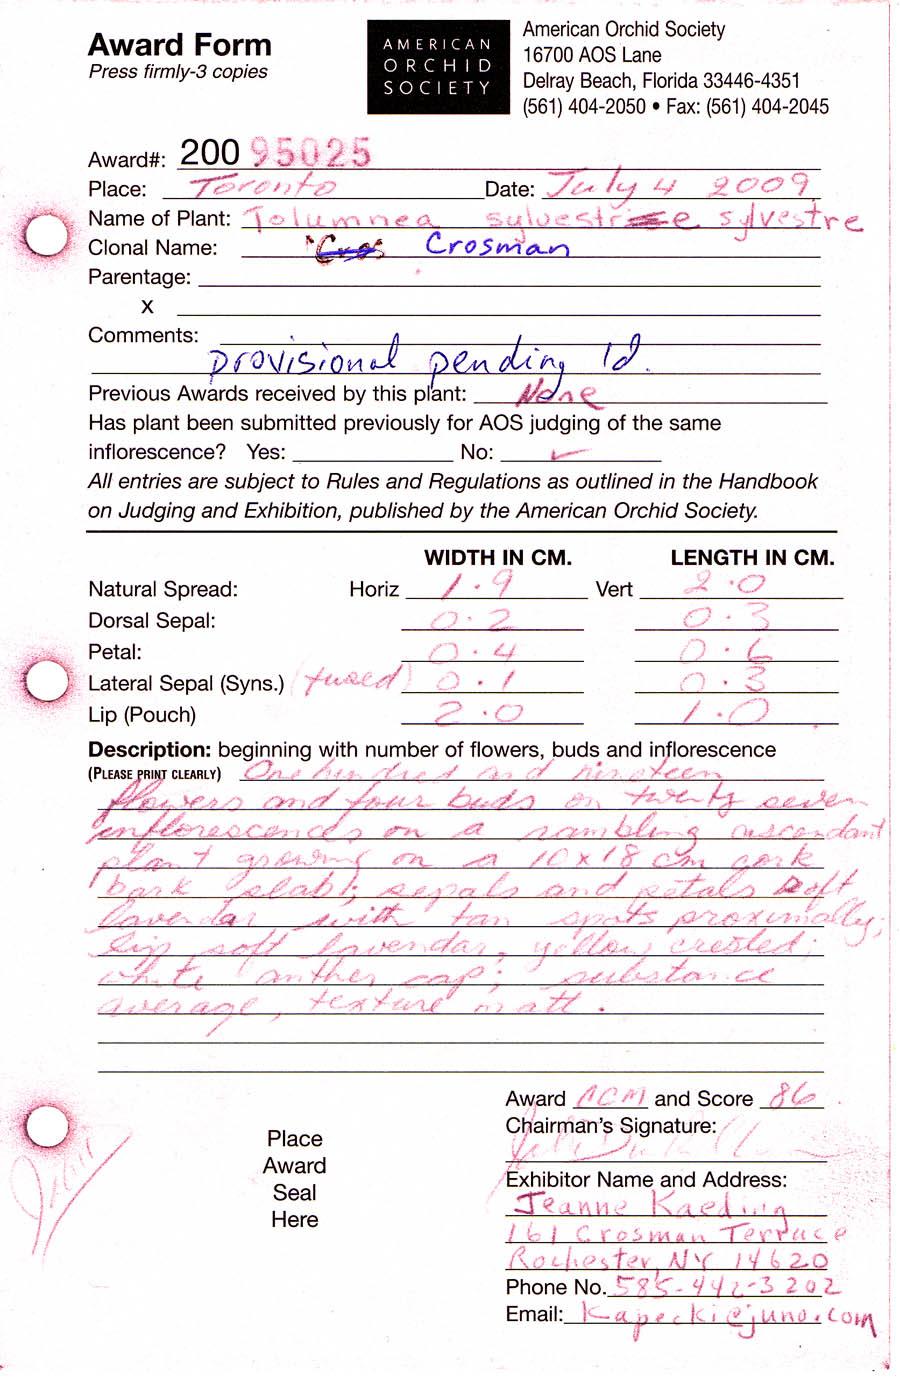 Award Form
Press firmly-3 copies
AMERICAN
ORCHID
SOCIETY
American Orchid Society
16700 AOS Lane
Delray Beach, Florida 33446-4351
(561) 404-2050 • Fax: (561) 404-2045
Award#: 200 95025
Place: Toronto Date: July 4 2009
Name of Plant: Tolumnea sylvestre sylvestre
Clonal Name: Crosman
Parentage:
x
Comments:
provisional pending Id.
Previous Awards received by this plant: None
Has plant been submitted previously for AOS judging of the same
inflorescence? Yes: No: ✓
All entries are subject to Rules and Regulations as outlined in the Handbook
on Judging and Exhibition, published by the American Orchid Society.
WIDTH IN CM. LENGTH IN CM.
Natural Spread: Horiz 1.9 Vert 2.0
Dorsal Sepal: 0.2 0.3
Petal: 0.4 0.6
Lateral Sepal (Syns.) (fused) 0.1 0.3
Lip (Pouch) 2.0 1.0
Description: beginning with number of flowers, buds and inflorescence
(PLEASE PRINT CLEARLY) One hundred and nineteen
flowers and four buds on twenty seven
inflorescences on a rambling ascendant
plant growing on a 10x18 cm cork
bark slab; sepals and petals soft
lavendar with tan spots proximally;
lip soft lavendar, yellow crested;
white anther cap; substance
average, texture matt.
Award CCM and Score 86
Chairman's Signature:
Place
Award
Seal
Here
Exhibitor Name and Address:
Jeanne Kaeding
161 Crosman Terrace
Rochester, NY 14620
Phone No. 585-442-3202
Email: Kapecki@juno.com